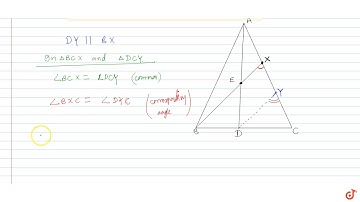 DY || BX
In △BCX and △DCY
∠BCX = ∠DCY (common)
∠BXC = ∠DYC (corresponding angle)
A
X
E
Y
B
D
C